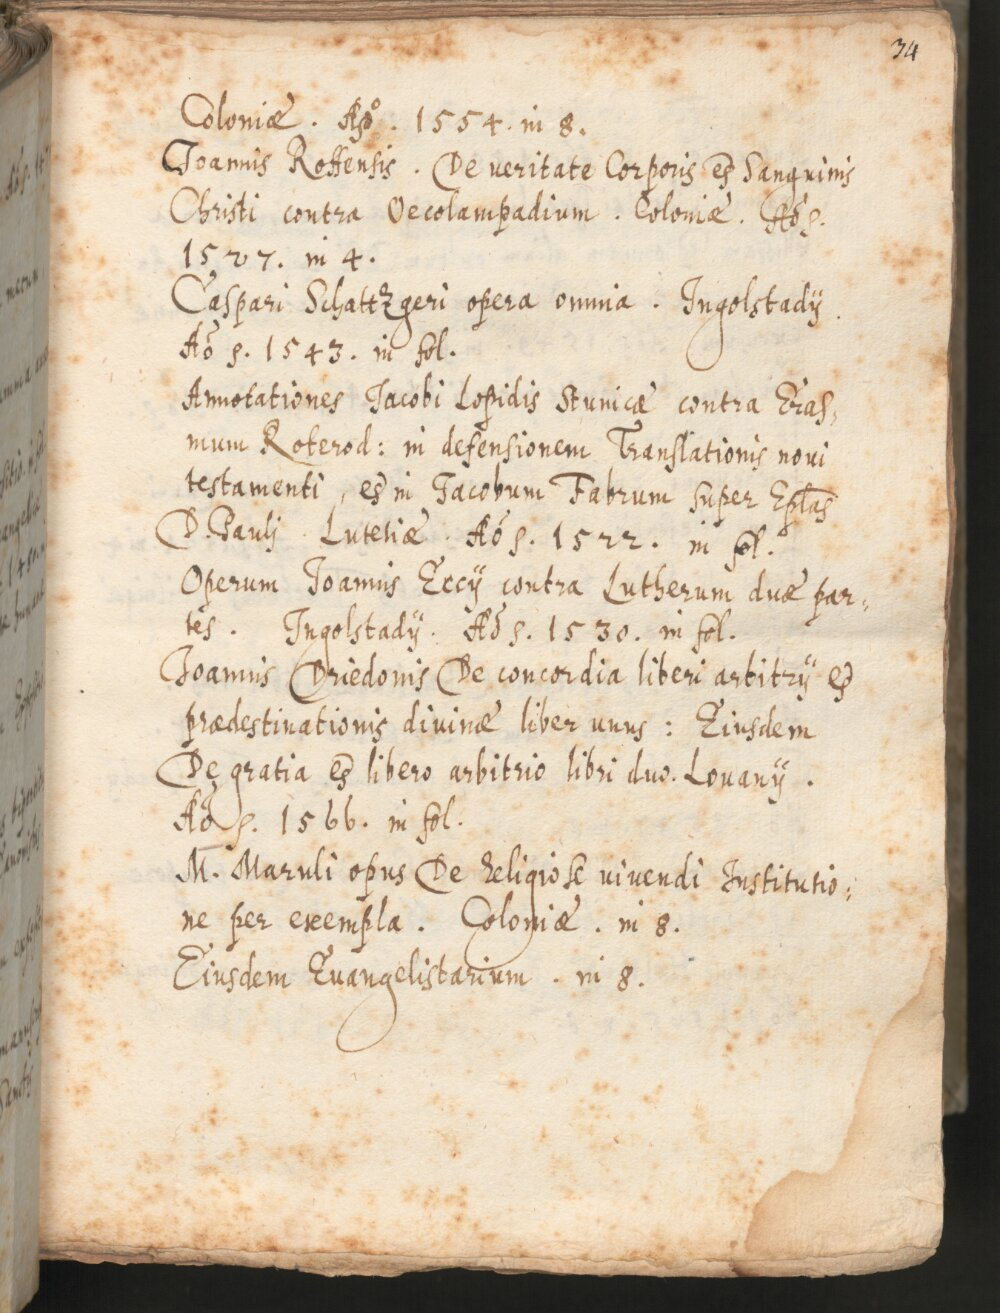 34
Coloniæ. Aṅo. 1554. in 8.
Joannis Roffensis. De veritate Corporis et Sanguinis
Christi contra Oecolampadium. Coloniæ. Aō s.
1527. in 4.
Caspari Schattzgeri opera omnia. Ingolstadÿ.
Aō s. 1543. in fol.
Annotationes Jacobi Lopidis Stunicæ contra Eras,
mum Roterod: in defensionem Translationis noui
testamenti, et in Jacobum Fabrum super Eplās
D. Paulj Lutetiæ. Aō s. 1522. in fol.
Operum Joannis Eccÿ contra Lutherum duæ par,
tes. Ingolstadÿ. Aō s. 1530. in fol.
Joannis Driedonis De concordia liberi arbitrÿ et
prædestinationis diuinæ liber unus: Eiusdem
De gratia et libero arbitrio libri duo. Louanÿ.
Aō s. 1566. in fol.
M. Maruli opus De religiose viuendi Institutio,
ne per exempla. Coloniæ. in 8.
Eiusdem Euangelistarium. in 8.